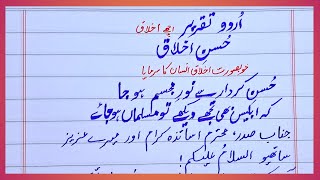 اُردو تقریر اچھے اخلاق
حُسنِ اخلاق
خوبصورت اخلاق انسان کا سرمایا
حُسنِ کردار سے نورِ مجسم ہو جا
کہ ابلیس بھی تجھے دیکھے تو مسلماں ہو جائے
جنابِ صدر، محترم اساتذہ کرام اور میرے عزیز
ساتھیو السلامُ علیکم!